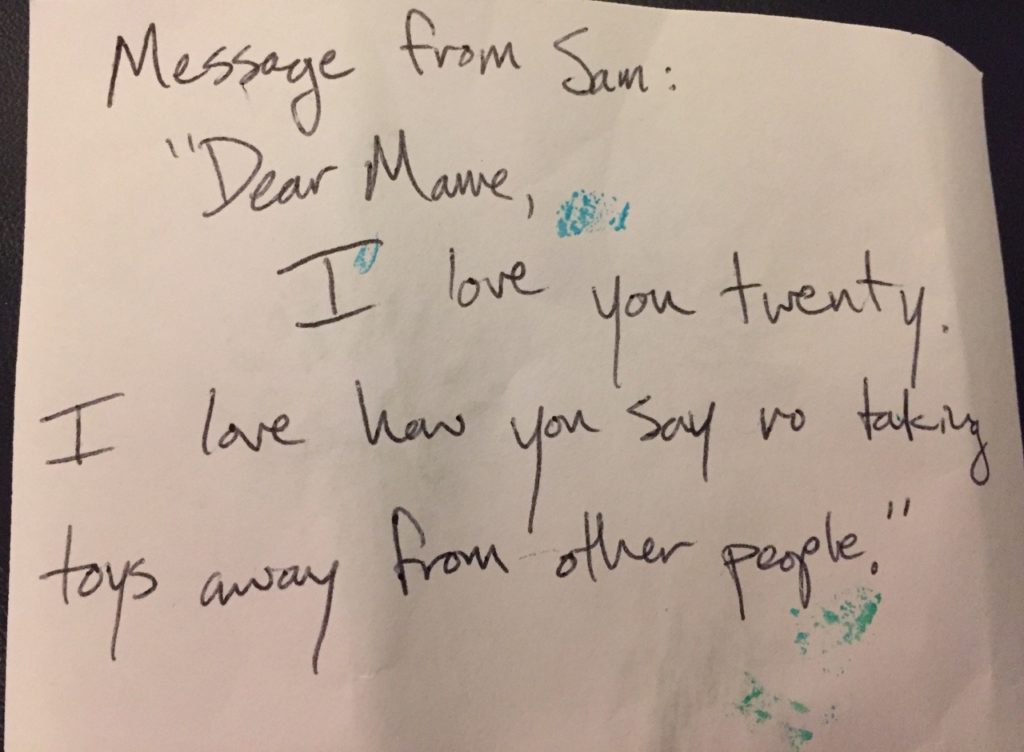 Message from Sam:
"Dear Mame,
I love you twenty.
I love how you say no taking
toys away from other people."